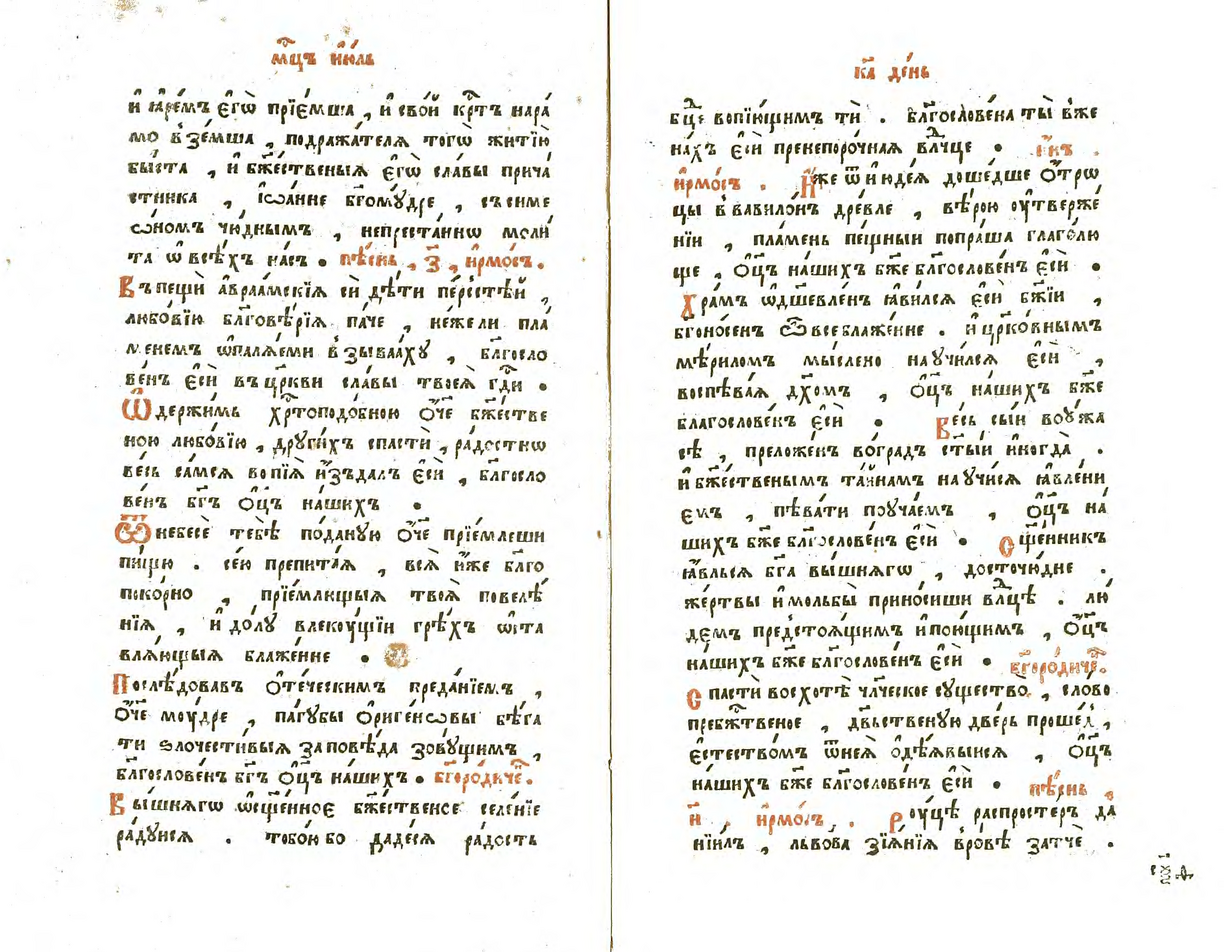 мⷭ҇цъ і҆ю́ль
и҆ ꙗ҆ре́мъ є҆гѡ̀ прїе́мша , и҆ сво́й крⷭ҇тъ нара́
мо взе́мша , подража́телѧ тогѡ̀ житїю̀
бы́ста , и҆ бж҃е́ственыѧ є҆гѡ̀ сла́вы прича́
стника , і҆ѡа́нне бг҃ому́дре , съ симе
ѡ́номъ чю́днымъ , непреста́ннѡ моли́
та ѡ҆ всѣ́хъ на́съ • пѣ́снь , з҃ , і҆рмо́съ .
Въ пещѝ а҆враа́мскїѧ сѝ дѣ́ти пе́рсстѣй ,
любо́вїю бл҃говѣ́рїѧ па́че , не́жели пла́
менемъ ѡ҆палѧ́еми взыва́хꙋ , бл҃госло
ве́нъ є҆сѝ въ цр҃кви сла́вы твоеѧ̀ гдⷭ҇и •
Ѡ҆держи́мь хрⷭ҇топодо́бною ѻ҆́ч҃е бж҃е́стве
ною любо́вїю , други́хъ спастѝ , ра́достнѡ
ве́сь са́мсѧ вопїѧ̀ и҆́зъдалъ є҆сѝ , бл҃госло
ве́нъ бг҃ъ ѻ҆ц҃ъ на́шихъ •
Ѿ небесѐ тебѣ̀ по́даную ѻ҆́ч҃е прїе́млеши
пи́щꙋ . се́ю препита́ѧ , всѧ̀ и҆̀же бл҃го
поко́рно , прїе́млющыѧ твоѧ̀ повелѣ́
нїѧ , и҆ до́лꙋ влекꙋ́щїи грѣ́хъ ѡ҆ста
влѧ́ющыѧ блаже́нне •
Послѣ́довавъ ѻ҆те́ческимъ преда́нїемъ ,
ѻ҆́ч҃е мꙋ́дре , па́губы ѻ҆риге́нѡвы бѣ́га
ти ѕлочести́выѧ заповѣ́да зовꙋ́щимъ ,
бл҃гослове́нъ бг҃ъ ѻ҆ц҃ъ на́шихъ • бг҃оро́диче .
Вы́шнѧгѡ ѡ҆сщ҃е́нное бж҃е́ственое селе́нїе
ра́дуисѧ . тобо́ю бо даде́сѧ ра́дость
к҃а де́нь
бц҃е вопїю́щимъ тѝ . бл҃гослове́на ты̀ вже
на́хъ є҆сѝ пренепоро́чная влⷣчце • и҆́нъ .
і҆рмо́съ . И҆̀же ѿ и҆юде́ѧ доше́дше ѻ҆́трѡ
цы въ вавило́нъ дре́вле , вѣ́рою оу҆тверже́
нїи , пла́мень пе́щныи попра́ша глаго́лю
ще , ѻ҆ц҃ъ на́шихъ бж҃е бл҃гослове́нъ є҆сѝ •
Хра́мъ ѡ҆дш҃евле́нъ ꙗ҆ви́лсѧ є҆сѝ бж҃їи ,
бг҃оно́сенъ ѿ всеблаже́нне . и҆ цр҃ко́внымъ
мѣ́риломъ мы́слено научи́лсѧ є҆сѝ ,
воспѣва́ѧ дх҃омъ , ѻ҆ц҃ъ на́шихъ бж҃е
благослове́нъ є҆сѝ • Ве́сь сы́и воу́жа
сѣ , преложе́нъ во́градъ ст҃ы́й и҆ногда̀ .
и҆ бж҃е́ственымъ та́йнамъ научи́сѧ ꙗ҆вле́ни
емъ , пѣва́ти пооуча́емъ , ѻ҆ц҃ъ на́
шихъ бж҃е бл҃гослове́нъ є҆сѝ • Сщ҃е́нникъ
ꙗ҆́вльсѧ бг҃а вы́шнѧгѡ , досточю́дне .
же́ртвы и҆ мольбы̀ прино́сиши влⷣцѣ . лю́
демъ предстоѧ́щимъ и҆ пою́щимъ , ѻ҆ц҃ъ
на́шихъ бж҃е бл҃гослове́нъ є҆сѝ • бг҃оро́диче .
Спастѝ восхотѣ̀ чл҃ческое сꙋщество̀ , сло́во
пребж҃твеное , дв҃ьственую две́рь проше́д ,
є҆стество́мъ ѿ неѧ̀ ѻ҆дѣ́ѧвыисѧ , ѻ҆ц҃ъ
на́шихъ бж҃е бл҃гослове́нъ є҆сѝ • пѣ́снь ,
и҃ . і҆рмо́съ . Роу́цѣ распросте́ръ да
нїи́лъ , льво́ва зїѧ́нїѧ вро́вѣ затчѐ .